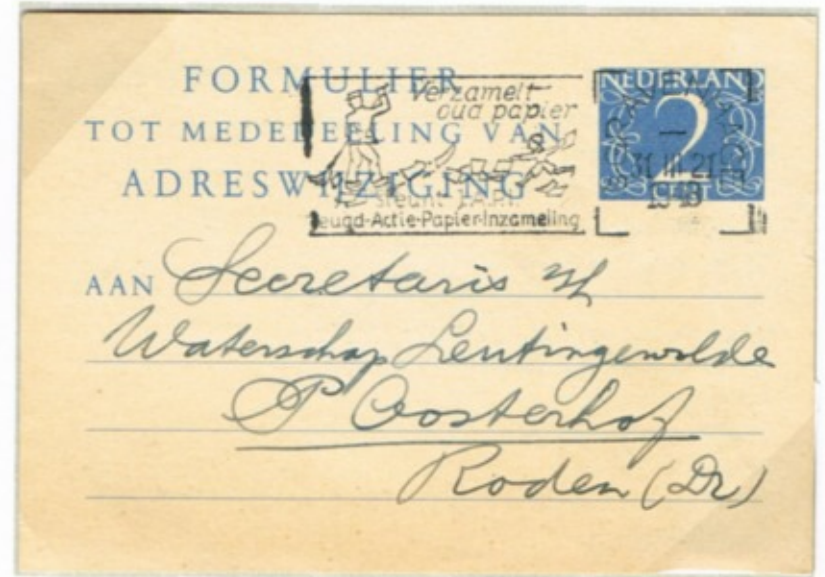 FORMULIER
TOT MEDEDEELING VAN
ADRESWIJZIGING
Verzamelt
oud papier
steunt J.A.P.I.
Jeugd-Actie-Papier-Inzameling
NEDERLAND
2
'S-GRAVENHAGE
31 III 21
1948
AAN Secretaris v/h
Waterschap Leutingewolde
P Oosterhof
Roden (Dr)